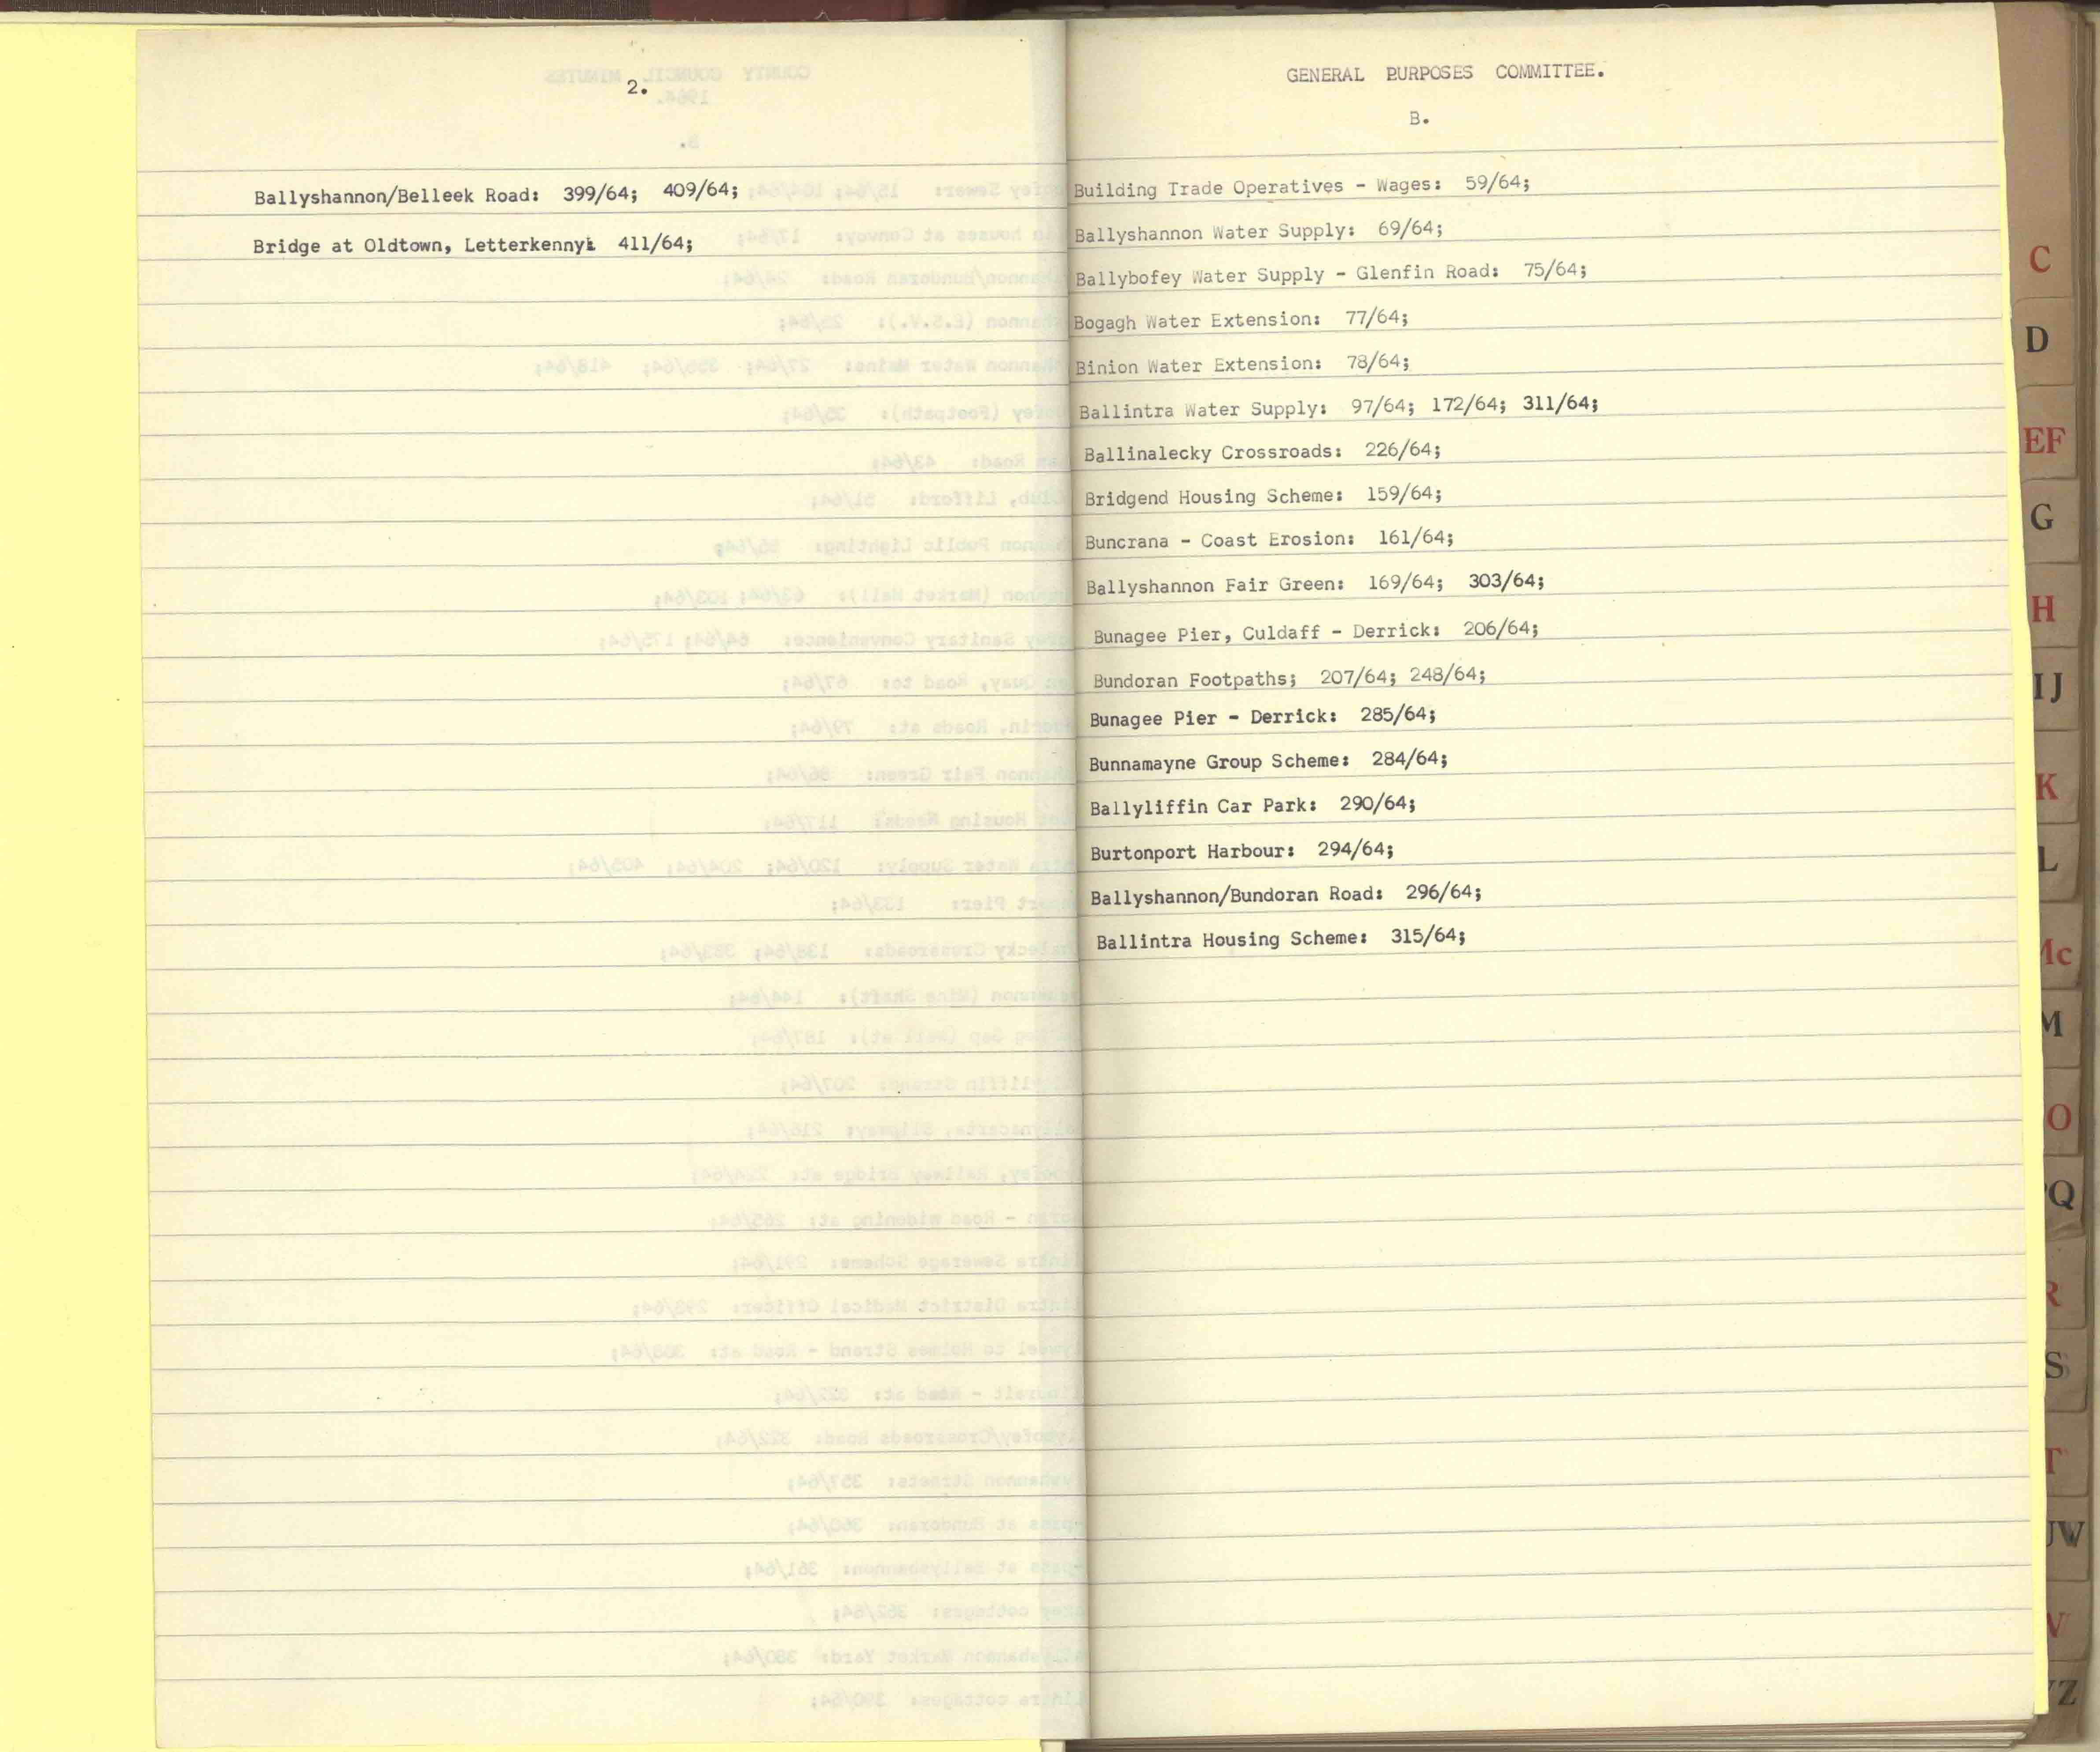 2.
Ballyshannon/Belleek Road: 399/64; 409/64;
Bridge at Oldtown, Letterkenny: 411/64;
GENERAL PURPOSES COMMITTEE.
B.
Building Trade Operatives - Wages: 59/64;
Ballyshannon Water Supply: 69/64;
Ballybofey Water Supply - Glenfin Road: 75/64;
Bogagh Water Extension: 77/64;
Binion Water Extension: 78/64;
Ballintra Water Supply: 97/64; 172/64; 311/64;
Ballinalecky Crossroads: 226/64;
Bridgend Housing Scheme: 159/64;
Buncrana - Coast Erosion: 161/64;
Ballyshannon Fair Green: 169/64; 303/64;
Bunagee Pier, Culdaff - Derrick: 206/64;
Bundoran Footpaths; 207/64; 248/64;
Bunagee Pier - Derrick: 285/64;
Bunnamayne Group Scheme: 284/64;
Ballyliffin Car Park: 290/64;
Burtonport Harbour: 294/64;
Ballyshannon/Bundoran Road: 296/64;
Ballintra Housing Scheme: 315/64;
C
D
EF
G
H
IJ
K
L
Mc
M
O
PQ
R
S
T
UW
Z